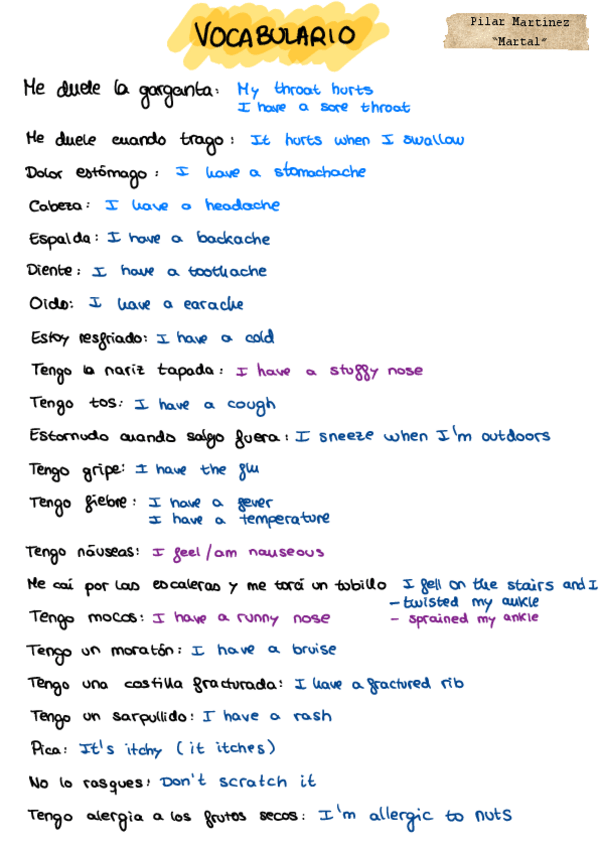 VOCABULARIO
Pilar Martinez
"Martal"
Me duele la garganta: My throat hurts
I have a sore throat
Me duele cuando trago: It hurts when I swallow
Dolor estómago: I have a stomachache
Cabeza: I have a headache
Espalda: I have a backache
Diente: I have a toothache
Oido: I have a earache
Estoy resfriado: I have a cold
Tengo la nariz tapada: I have a stuffy nose
Tengo tos: I have a cough
Estornudo cuando salgo fuera: I sneeze when I'm outdoors
Tengo gripe: I have the flu
Tengo fiebre: I have a fever
I have a temperature
Tengo náuseas: I feel/am nauseous
Me caí por las escaleras y me torcí un tobillo I fell on the stairs and I
- twisted my ankle
Tengo mocos: I have a runny nose - sprained my ankle
Tengo un moratón: I have a bruise
Tengo una costilla fracturada: I have a fractured rib
Tengo un sarpullido: I have a rash
Pica: It's itchy (it itches)
No lo rasques: Don't scratch it
Tengo alergia a los frutos secos: I'm allergic to nuts